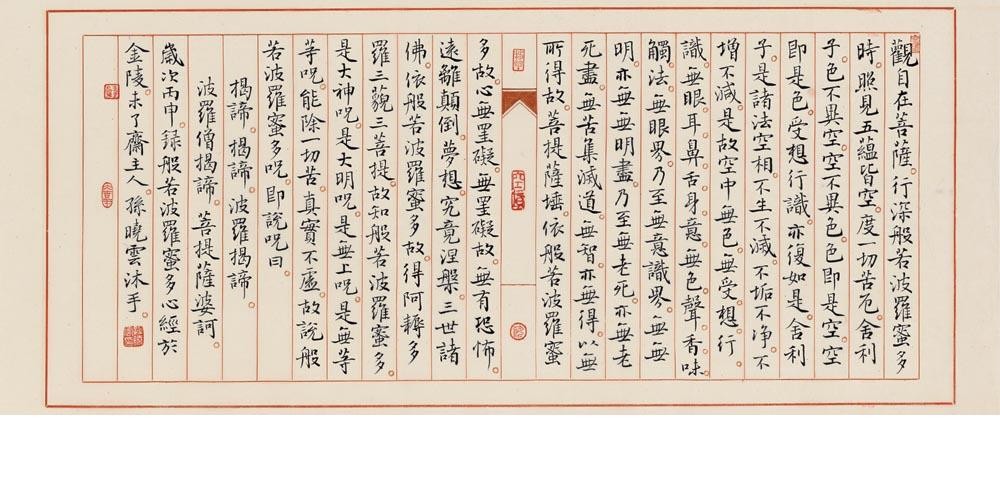 觀自在菩薩。行深般若波羅蜜多
時。照見五蘊皆空。度一切苦厄。舍利
子。色不異空。空不異色。色即是空。空
即是色。受想行識。亦復如是。舍利
子。是諸法空相。不生不滅。不垢不净。不
增不減。是故空中無色。無受想。行
識。無眼。耳鼻舌身意。無色聲香味
觸法。無眼界。乃至無意識界。無無
明。亦無無明盡。乃至無老死。亦無老
死盡。無苦集滅道。無智亦無得。以無
所得故。菩提薩埵。依般若波羅蜜
多故。心無罣礙。無罣礙故。無有恐怖。
遠離顛倒。夢想。究竟涅槃。三世諸
佛。依般若波羅蜜多故。得阿耨多
羅三藐三菩提。故知般若波羅蜜多
是大神呪。是大明呪。是無上呪。是無等
等呪。能除一切苦。真實不虛。故說般
若波羅蜜多呪。即說呪曰。
揭諦。揭諦。波羅揭諦。
波羅僧揭諦。菩提薩婆訶。
歲次丙申。録般若波羅蜜多心經於
金陵。未了齋主人。孫曉雲沐手。